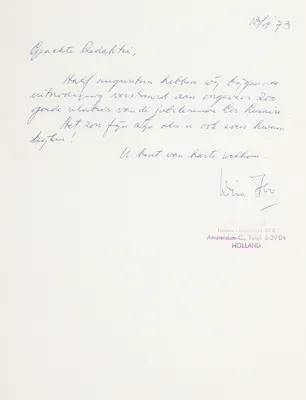 18/9 73
Geachte Redaktie,
Half augustus hebben wij bijgaande
uitnodiging verstuurd aan ongeveer 200
goede relaties van de
Het zou fijn zijn als u ook even kwam
kijken!
U bent van harte welkom.
Wim
Amsterdam-C., Telef. 63904
HOLLAND